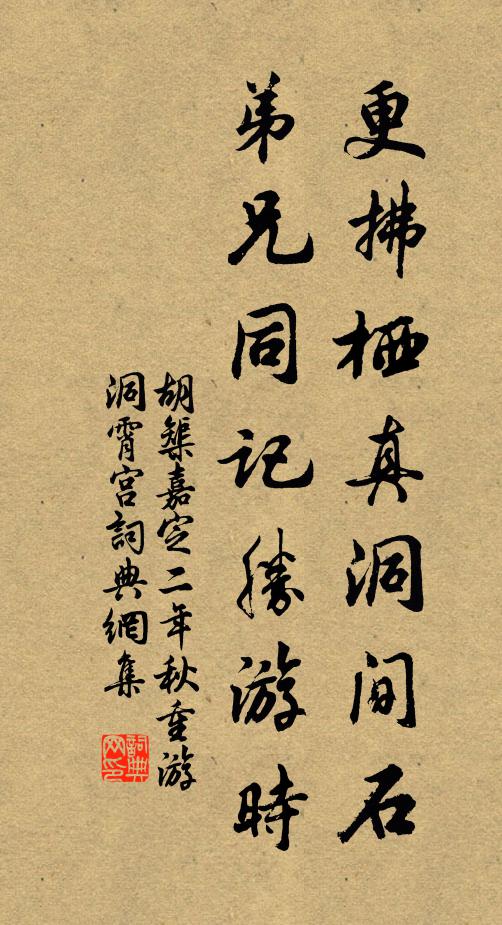 更拂栖真洞间石
弟兄同记胜游时
胡榘嘉定二年秋重游
洞霄宫詞典網集
詞典网印